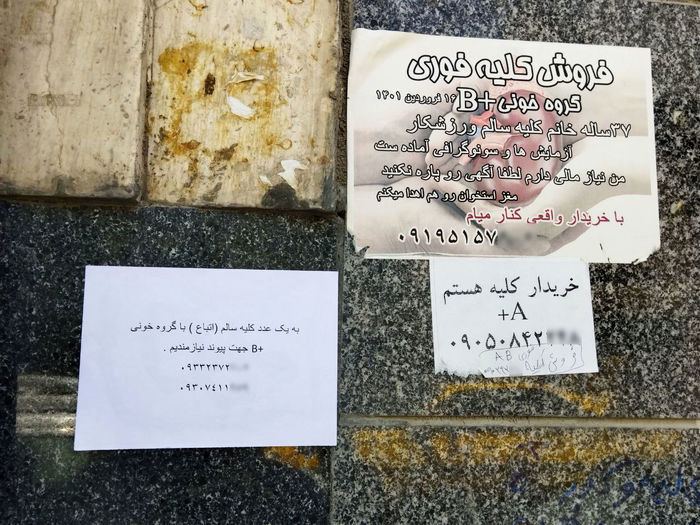 فروش کلیه فوری
گروه خونی +B ۱۶ فروردین ۱۴۰۱
۳۷ساله خانم کلیه سالم ورزشکار
آزمایش ها و سونوگرافی آماده ست
من نیاز مالی دارم لطفا آگهی رو پاره نکنید
مغز استخوان رو هم اهدا میکنم
با خریدار واقعی کنار میام
۰۹۱۹۵۱۵۷
خریدار کلیه هستم
A+
۰۹۰۵۰۸۴۲
AB
فروش کلیه
به یک عدد کلیه سالم (اتباع ) با گروه خونی
B+ جهت پیوند نیازمندیم .
۰۹۳۳۲۳۷۲
۰۹۳۰۷۴۱۱